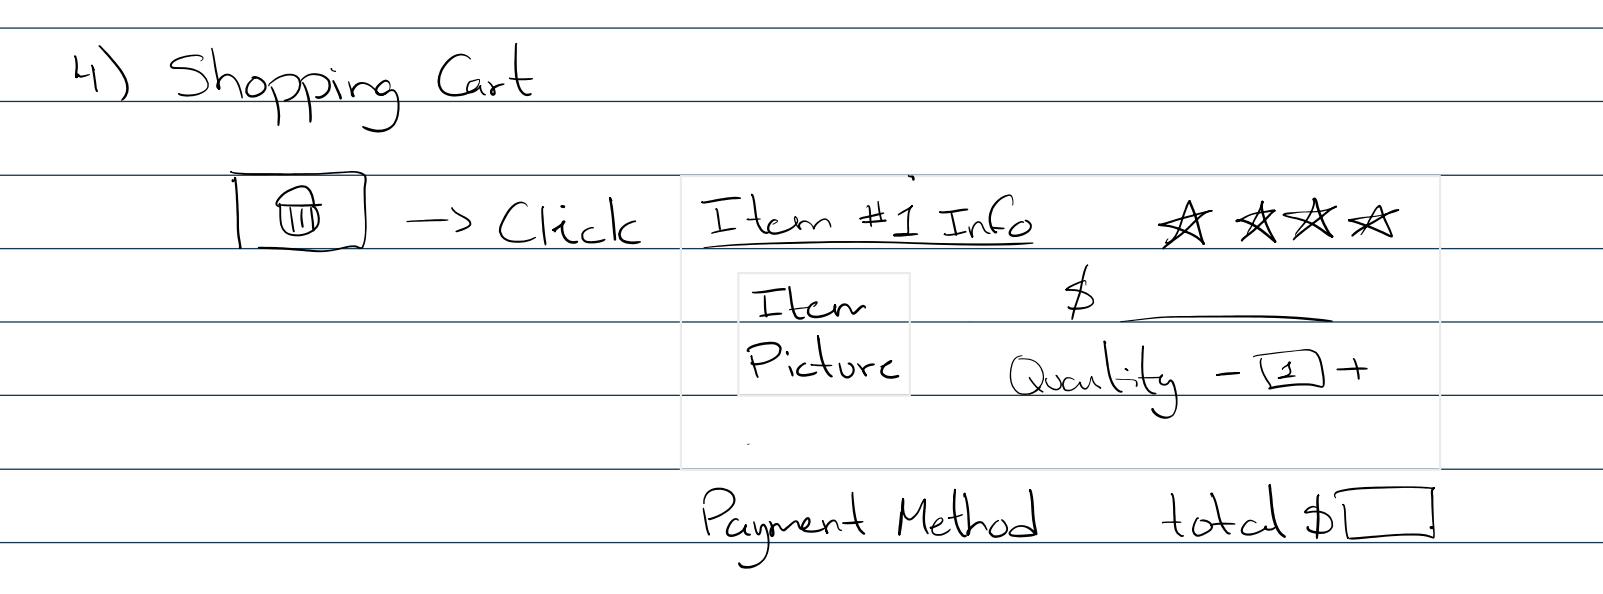 4) Shopping Cart
→ Click Item #1 Info
Item $
Picture Quantity - 1 +
Payment Method total $